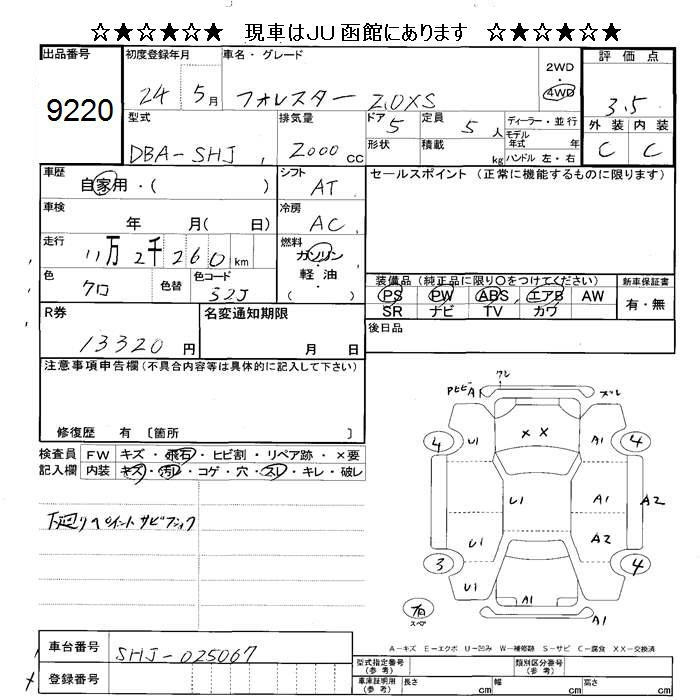 ☆★☆★☆ 現車はJU函館にあります ☆★☆★☆
出品番号 9220
初度登録年月 24 5月
車名・グレード フォレスター 2.0XS
2WD・4WD
評価点 3.5
外装 内装
C C
型式 DBA-SHJ
排気量 2000cc
ドア 5 定員 5人
形状 積載 kg
ディーラー・並行
モデル年式 年
ハンドル 左・右
車歴 自家用・( )
シフト AT
セールスポイント (正常に機能するものに限ります)
車検 年 月( 日)
冷房 AC
走行 11万2千260km
燃料 ガソリン・軽油 ( )
色 クロ 色替 色コード 52J
装備品(純正品に限り○をつけてください)
PS PW ABS エアB AW
SR ナビ TV カワ
新車保証書 有・無
R券 13320円
名変通知期限 月 日
後日品
注意事項申告欄(不具合内容等は具体的に記入して下さい)
修復歴 有 〔箇所 〕
検査員記入欄
FW キズ・飛石・ヒビ割・リペア跡・×要
内装 キズ・汚レ・コゲ・穴・スレ・キレ・破レ
下廻りペイントサビブラック
クレ
PヒビA1 ズレ
4 U1 X X A1 4
U1 A1 A2
U1 A2
3 U1 4
A1
A1
有
スペ
A-キズ E-エクボ U-凹み W-補修跡 S-サビ C-腐食 XX-交換済
車台番号 SHJ-025067
登録番号
型式指定番号(参考) 類別区分番号(参考)
車庫証明用(参考) 長さ cm 幅 cm 高さ cm